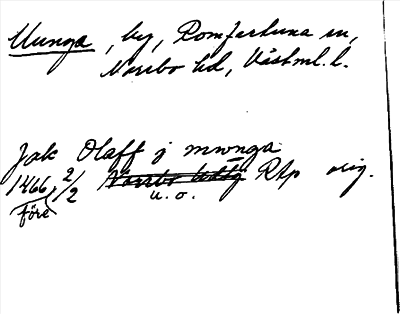 Munga, by, Romfartuna sn,
Norrbo hd, Västml. l.
Jak Olaff j mwnga
1466 2/2 Norrbo hdtg RAp orig.
Före u. o.